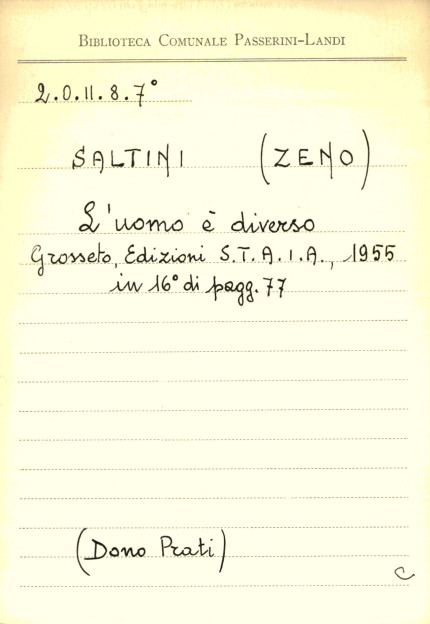 BIBLIOTECA COMUNALE PASSERINI-LANDI
2.0.II.8.7°
SALTINI (ZENO)
L'uomo è diverso
Grosseto, Edizioni S.T.A.I.A., 1955
in 16° di pagg. 77
(Dono Prati)
C